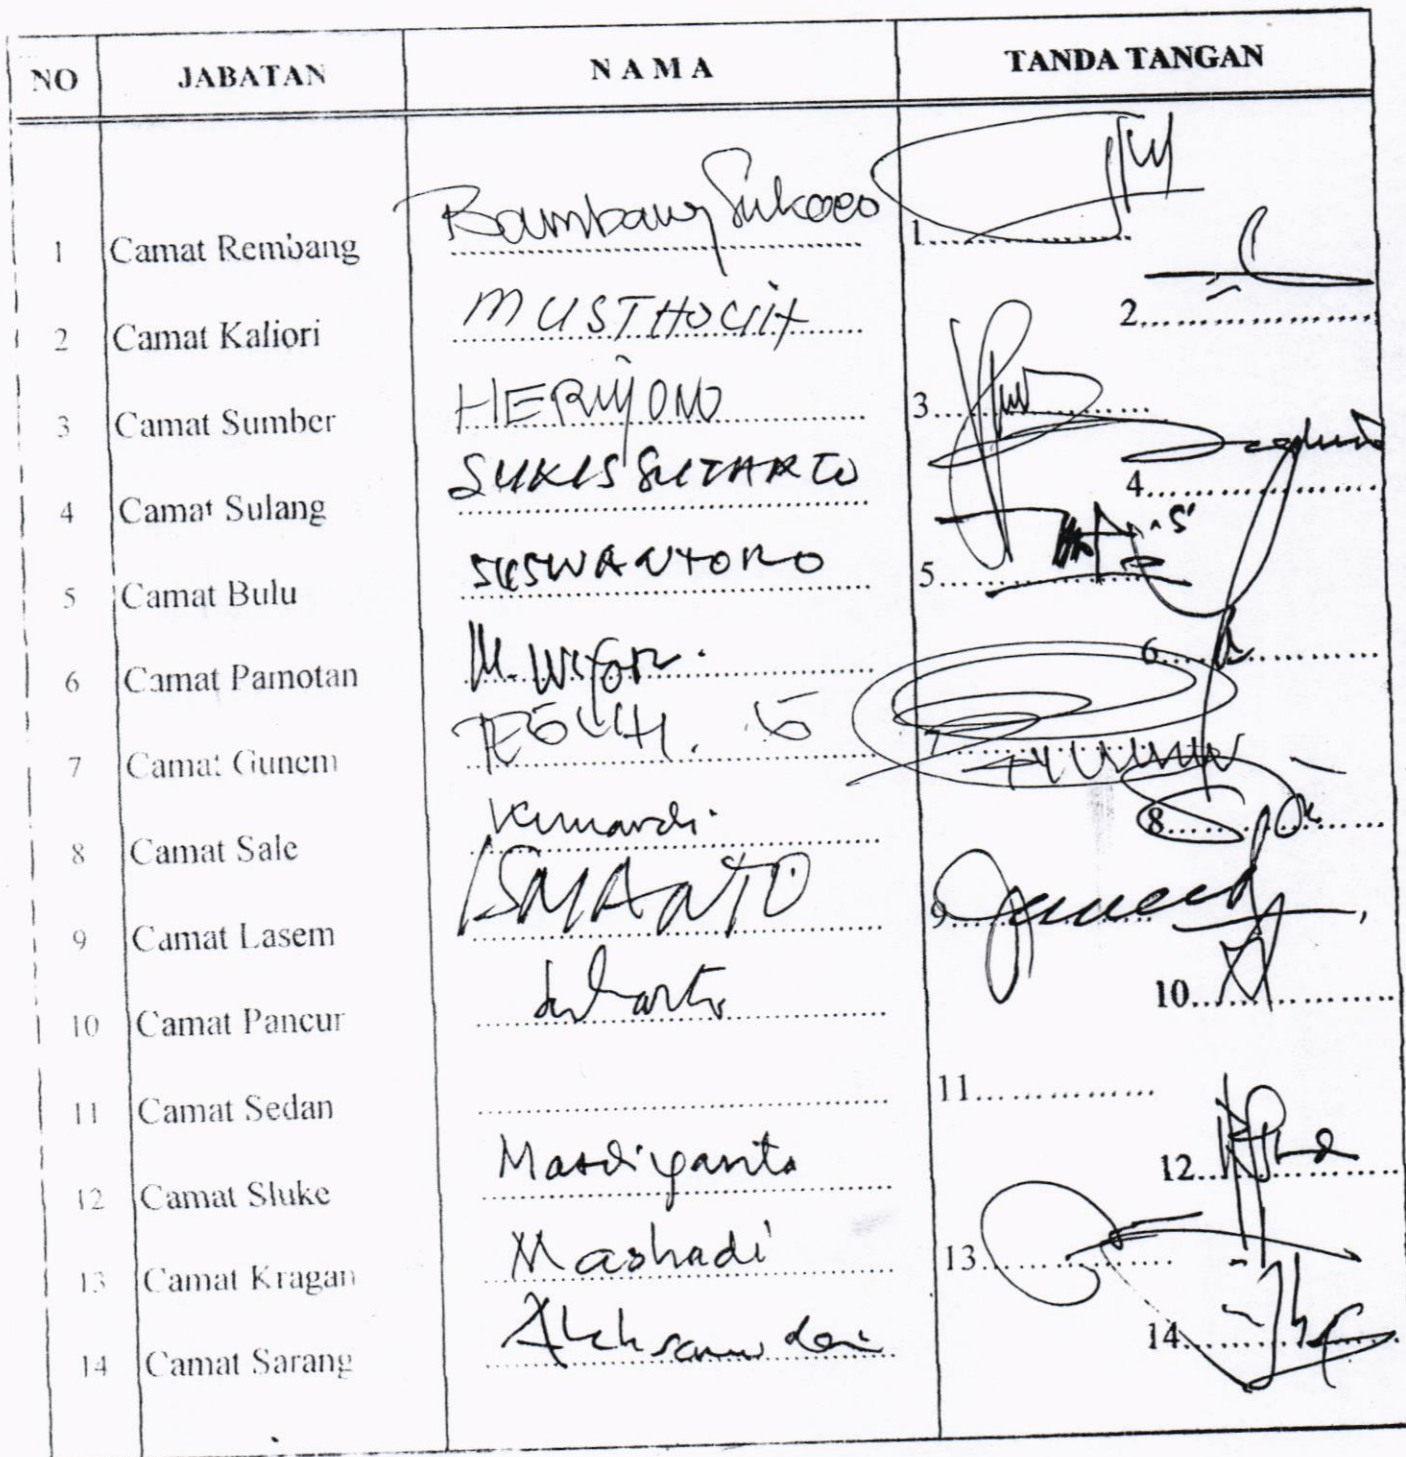 NO JABATAN N A M A TANDA TANGAN
1 Camat Rembang Bambang Sukoco 1
2 Camat Kaliori MUSTHOLIH 2
3 Camat Sumber HERIYONO 3
4 Camat Sulang SUKIS SUTARTO 4
5 Camat Bulu SISWANTORO 5
6 Camat Pamotan M. 6
7 Camat Gunem TEGUH. 7
8 Camat Sale Kunardi. 8
9 Camat Lasem ISMANTO 9
10 Camat Pancur Suharto 10
11 Camat Sedan 11
12 Camat Sluke Mardiyanto 12
13 Camat Kragan Mashadi 13
14 Camat Sarang 14